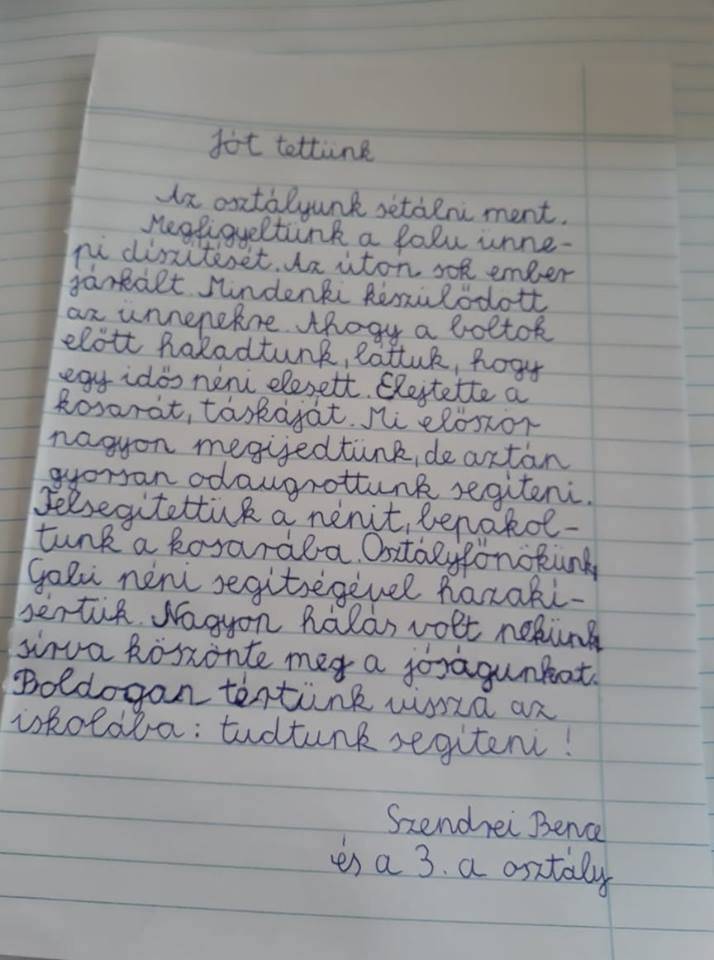 Jót tettünk
Az osztályunk sétálni ment.
Megfigyeltünk a falu ünne-
pi díszítését. Az úton sok ember
járkált. Mindenki készülődött
az ünnepekre. Ahogy a boltok
előtt haladtunk, láttuk, hogy
egy idős néni elesett. Elejtette a
kosarát, táskáját. Mi először
nagyon megijedtünk, de aztán
gyorsan odaugrottunk segíteni.
Felsegítettük a nénit, bepakol-
tunk a kosarába. Osztályfőnökünk,
Gabi néni segítségével hazakí-
sértük. Nagyon hálás volt nekünk,
sírva köszönte meg a jóságunkat.
Boldogan tértünk vissza az
iskolába: tudtunk segíteni!
Szendrei Bence
és a 3. a osztály